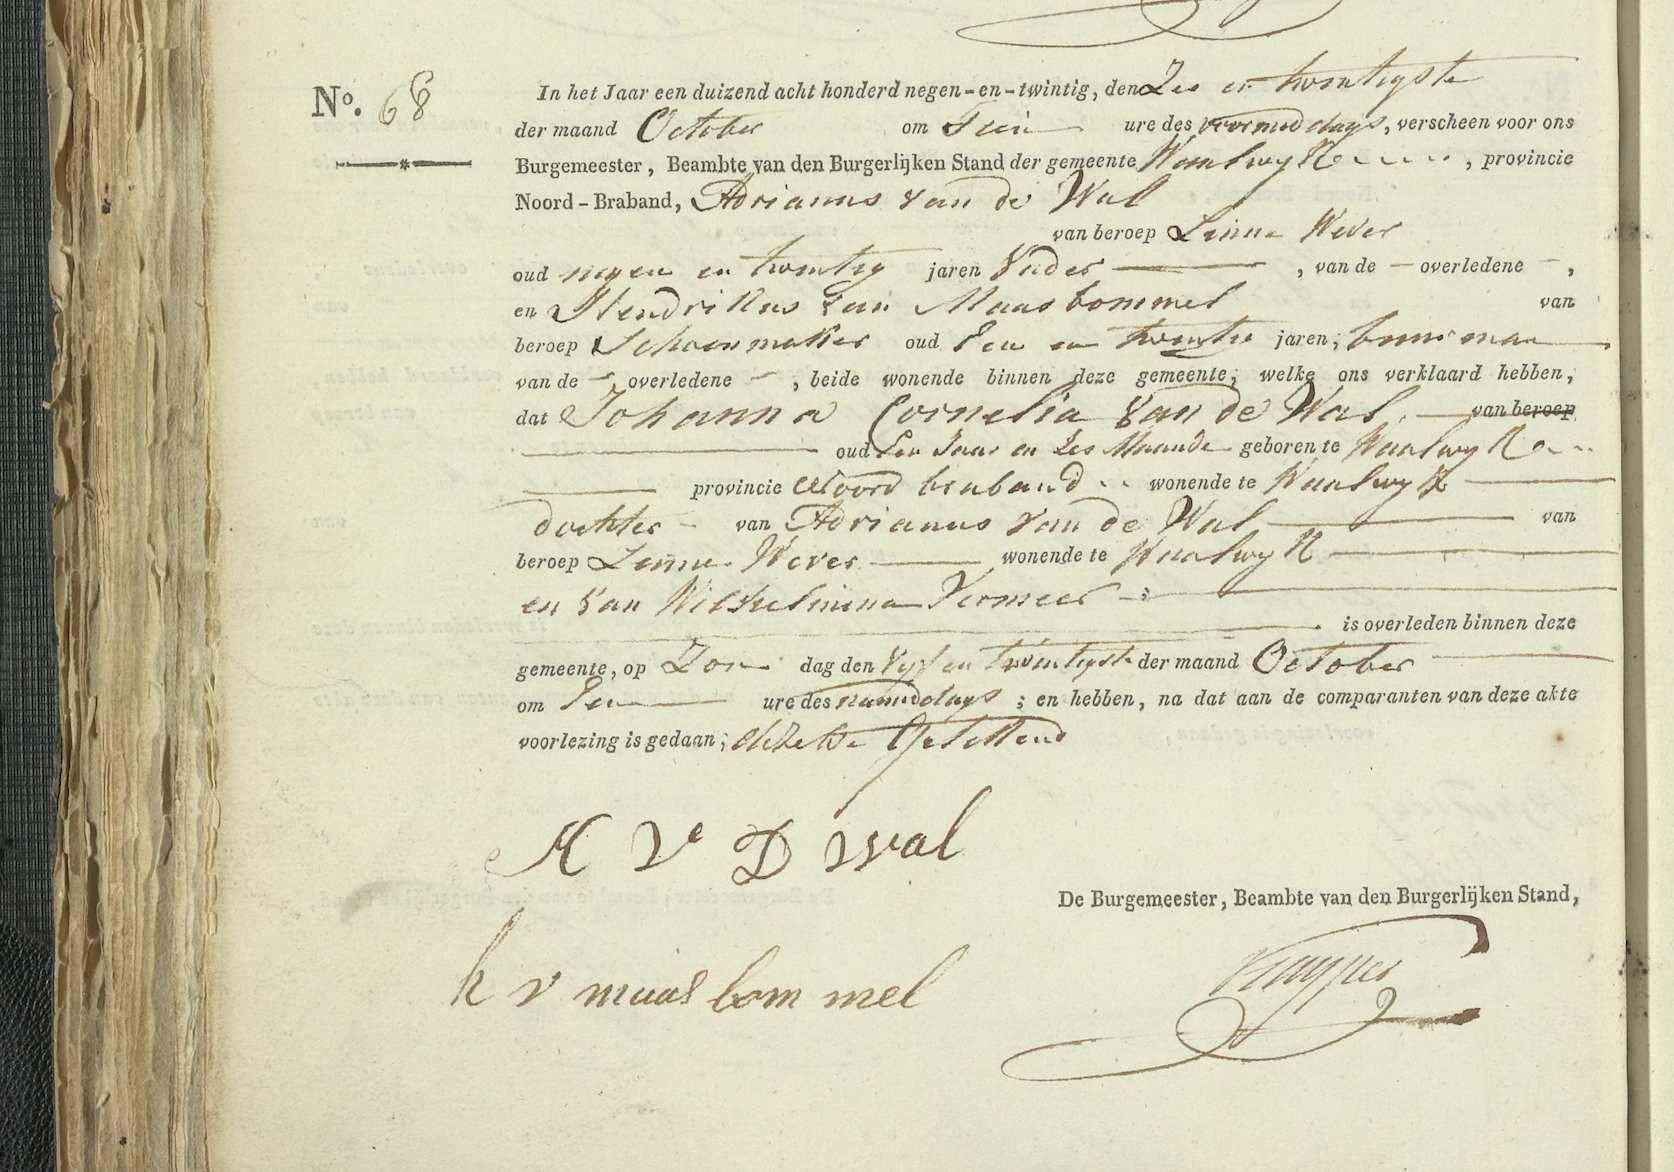 No. 68
In het Jaar een duizend acht honderd negen-en-twintig, den Zes en twintigste
der maand October om Tien ure des voormiddags, verscheen voor ons
Burgemeester, Beambte van den Burgerlijken Stand der gemeente Waalwyk, provincie
Noord-Braband, Adrianus van de Wal
van beroep Linne Wever
oud negen en twintig jaren Vader, van de overledene,
en Hendrikus van Maasbommel van
beroep Schoenmaker oud Een en twintig jaren, buurman
van de overledene, beide wonende binnen deze gemeente; welke ons verklaard hebben,
dat Johanna Cornelia van de Wal van beroep
oud Een Jaar en Zes Maande geboren te Waalwyk
provincie Noord braband wonende te Waalwyk
dochter van Adrianus van de Wal van
beroep Linne Wever wonende te Waalwyk
en van Wilhelmina Vermeer
is overleden binnen deze
gemeente, op Zon dag den vyf en twintigste der maand October
om Een ure des namiddags; en hebben, na dat aan de comparanten van deze akte
voorlezing is gedaan, dezelve Getekend
A V D Wal
De Burgemeester, Beambte van den Burgerlijken Stand,
h v maasbommel
Kuyper